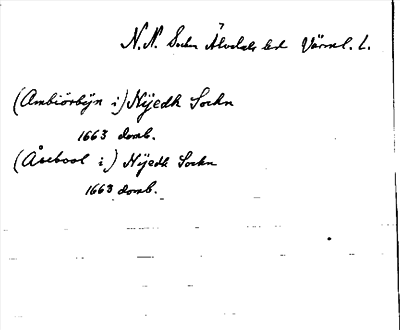 N. N. Sockn Älvdals hd Värml. L.
(Ambiörbÿn i) Nÿedh Sockn
1663 domb.
(Åsebool i) Nÿedh Sockn
1663 domb.